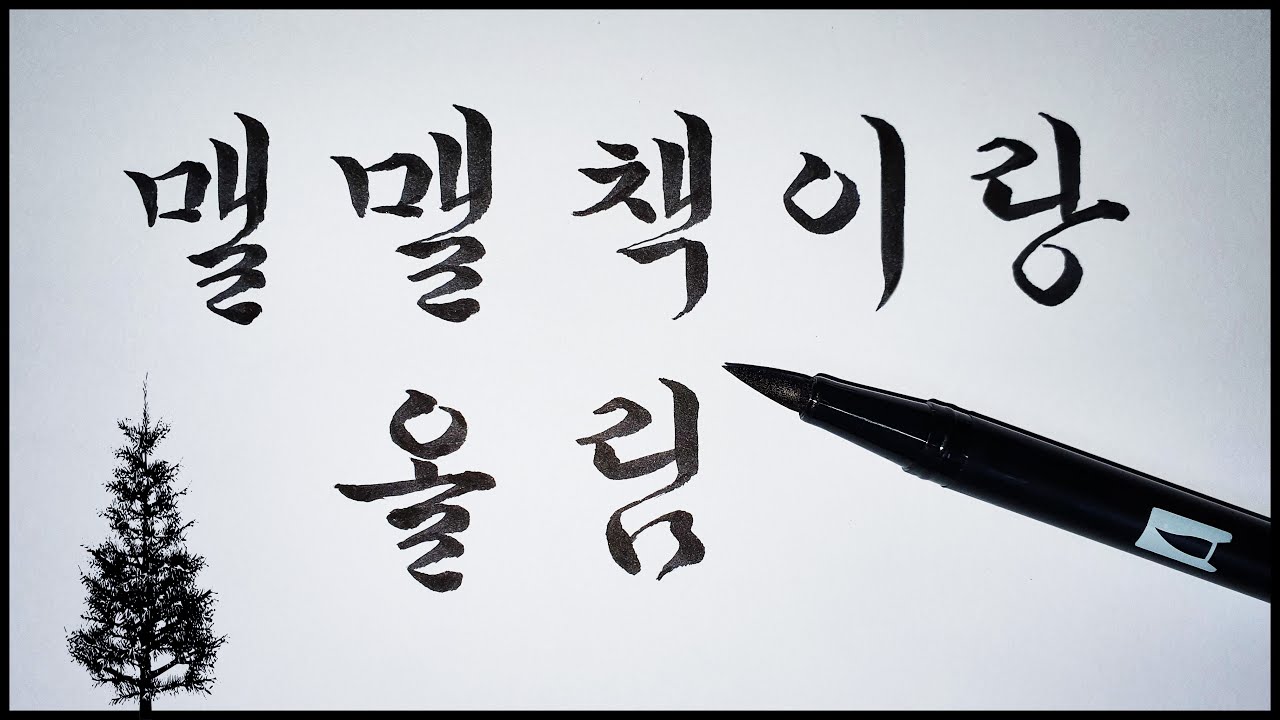 맬맬책이랑
올림